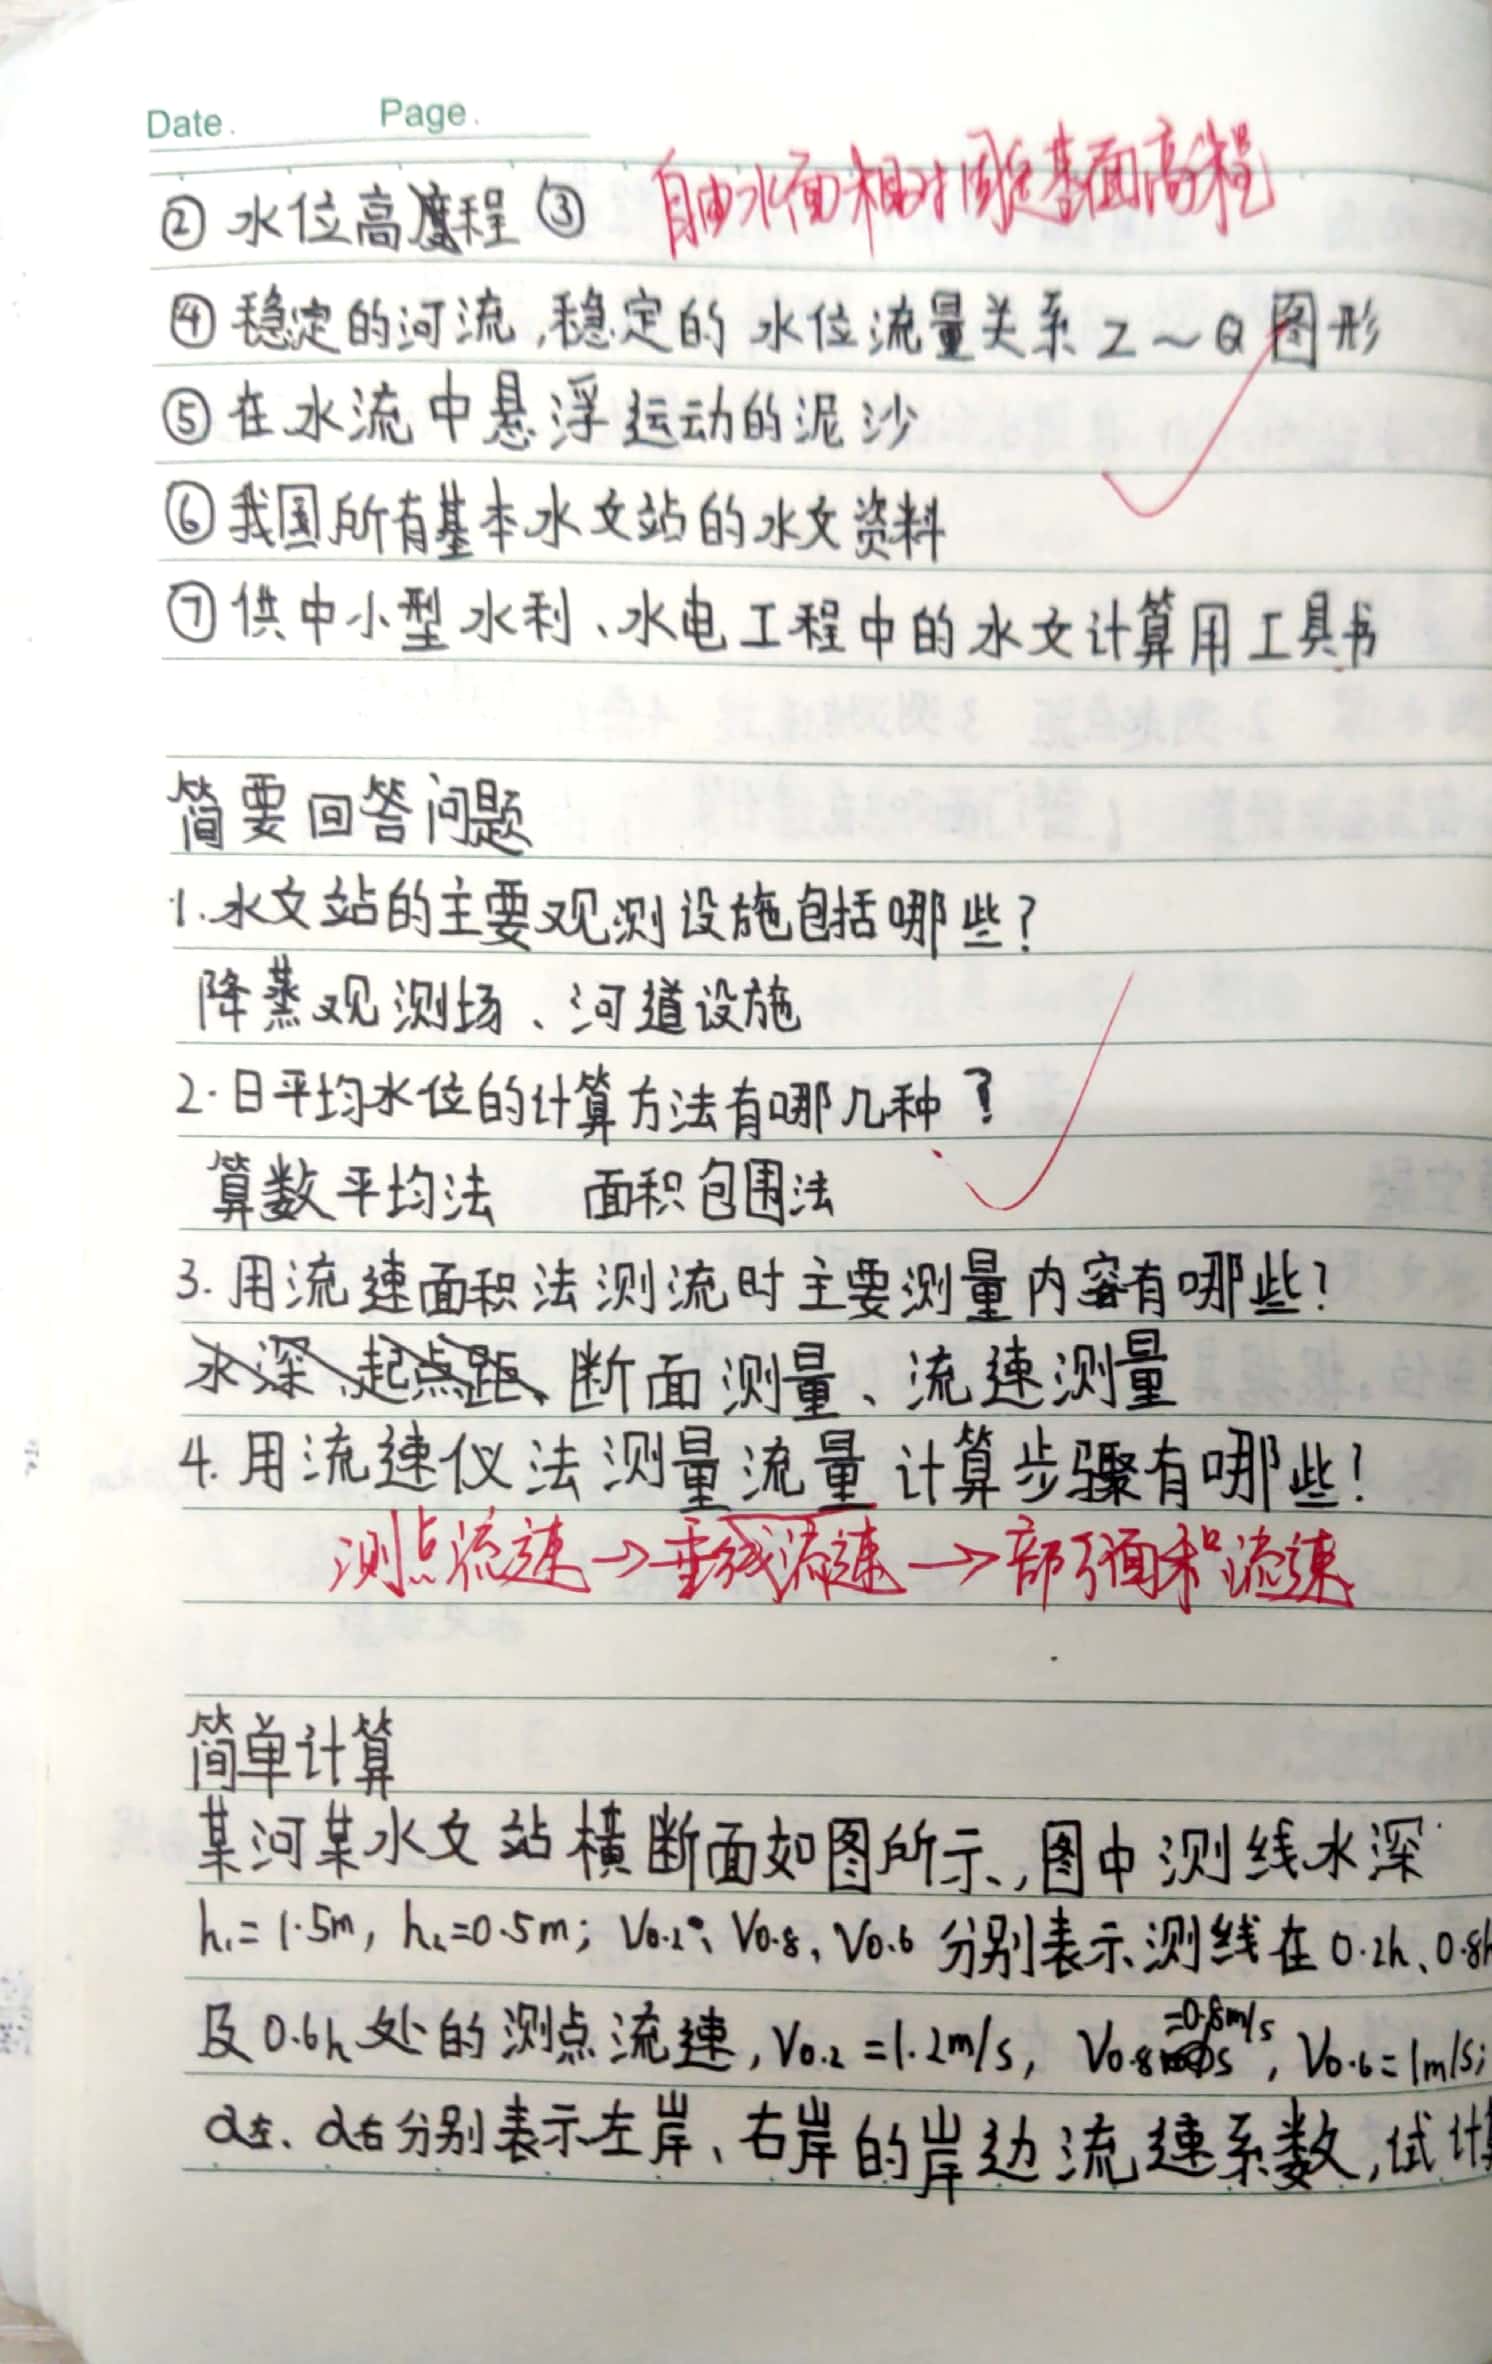 Date. Page.
② 水位高程 ③ 自由水面相对固定基面高程
④ 稳定的河流,稳定的水位流量关系 Z～Q 图形
⑤ 在水流中悬浮运动的泥沙
⑥ 我国所有基本水文站的水文资料
⑦ 供中小型水利、水电工程中的水文计算用工具书
简要回答问题
1.水文站的主要观测设施包括哪些?
降蒸观测场、河道设施
2.日平均水位的计算方法有哪几种?
算数平均法 面积包围法
3.用流速面积法测流时主要测量内容有哪些?
水深、起点距、断面测量、流速测量
4.用流速仪法测量流量计算步骤有哪些?
测点流速→垂线流速→部分面积流速
简单计算
某河某水文站横断面如图所示,图中测线水深
h₁=1.5m, h₂=0.5m; V0.2、V0.8、V0.6 分别表示测线在 0.2h、0.8h
及0.6h处的测点流速,V0.2=1.2m/s, V0.8=0.8m/s, V0.6=1m/s;
α左、α右分别表示左岸、右岸的岸边流速系数,试计算